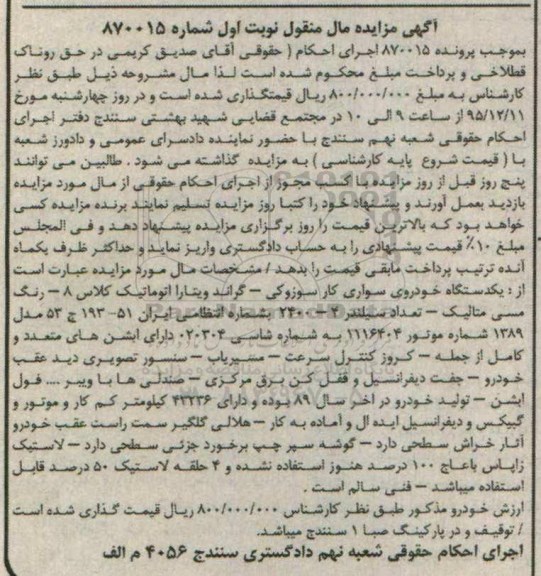 آگهی مزایده مال منقول نوبت اول شماره ۸۷۰۰۱۵
بموجب پرونده ۸۷۰۰۱۵ اجرای احکام ( حقوقی آقای صدیق کریمی در حق روناک
قطلاخی و پرداخت مبلغ محکوم شده است لذا مال مشروحه ذیل طبق نظر
کارشناس به مبلغ ۸۰۰/۰۰۰/۰۰۰ ریال قیمتگذاری شده است و در روز چهارشنبه مورخ
۹۵/۱۲/۱۱ از ساعت ۹ الی ۱۰ در مجتمع قضایی شهید بهشتی سنندج دفتر اجرای
احکام حقوقی شعبه نهم سنندج با حضور نماینده دادسرای عمومی و دادورز شعبه
با ( قیمت شروع پایه کارشناسی ) به مزایده گذاشته می شود . طالبین می توانند
پنج روز قبل از روز مزایده با کسب مجوز از اجرای احکام حقوقی از مال مورد مزایده
بازدید بعمل آورند و پیشنهاد خود را کتبا روز مزایده تسلیم نمایند برنده مزایده کسی
خواهد بود که بالاترین قیمت را روز برگزاری مزایده پیشنهاد دهد و فی المجلس
مبلغ ۱۰٪ قیمت پیشنهادی را به حساب دادگستری واریز نماید و حداکثر ظرف یکماه
آنده ترتیب پرداخت مابقی قیمت را بدهد / مشخصات مال مورد مزایده عبارت است
از : یکدستگاه خودروی سواری کار سوزوکی – گراند ویتارا اتوماتیک کلاس ۸ – رنگ
مسی متالیک – تعداد سیلندر ۴ – ۲۴۰۰ بشماره انتظامی ایران ۵۱- ۱۹۳ ج ۵۳ مدل
۱۳۸۹ شماره موتور ۱۱۱۶۴۰۴ به شماره شاسی ۰۲۰۳۰۴ دارای ابشن های متعدد و
کامل از جمله – کروز کنترل سرعت – مسیریاب – سنسور تصویری دید عقب
خودرو – جفت دیفرانسیل و قفل کن برق مرکزی – صندلی ها با ویبر .... فول
ابشن – تولید خودرو در اخر سال ۸۹ بوده و دارای ۴۳۲۳۶ کیلومتر کم کار و موتور و
گیبکس و دیفرانسیل ایده ال و آماده به کار – هلالی گلگیر سمت راست عقب خودرو
آثار خراش سطحی دارد – گوشه سپر چپ برخورد جزئی سطحی دارد – لاستیک
زاپاس باعاج ۱۰۰ درصد هنوز استفاده نشده و ۴ حلقه لاستیک ۵۰ درصد قابل
استفاده میباشد – فنی سالم است .
ارزش خودرو مذکور طبق نظر کارشناس ۸۰۰/۰۰۰/۰۰۰ ریال قیمت گذاری شده است
/ توقیف و در پارکینگ صبا ۱ سنندج میباشد.
اجرای احکام حقوقی شعبه نهم دادگستری سنندج ۴۰۵۶ م الف